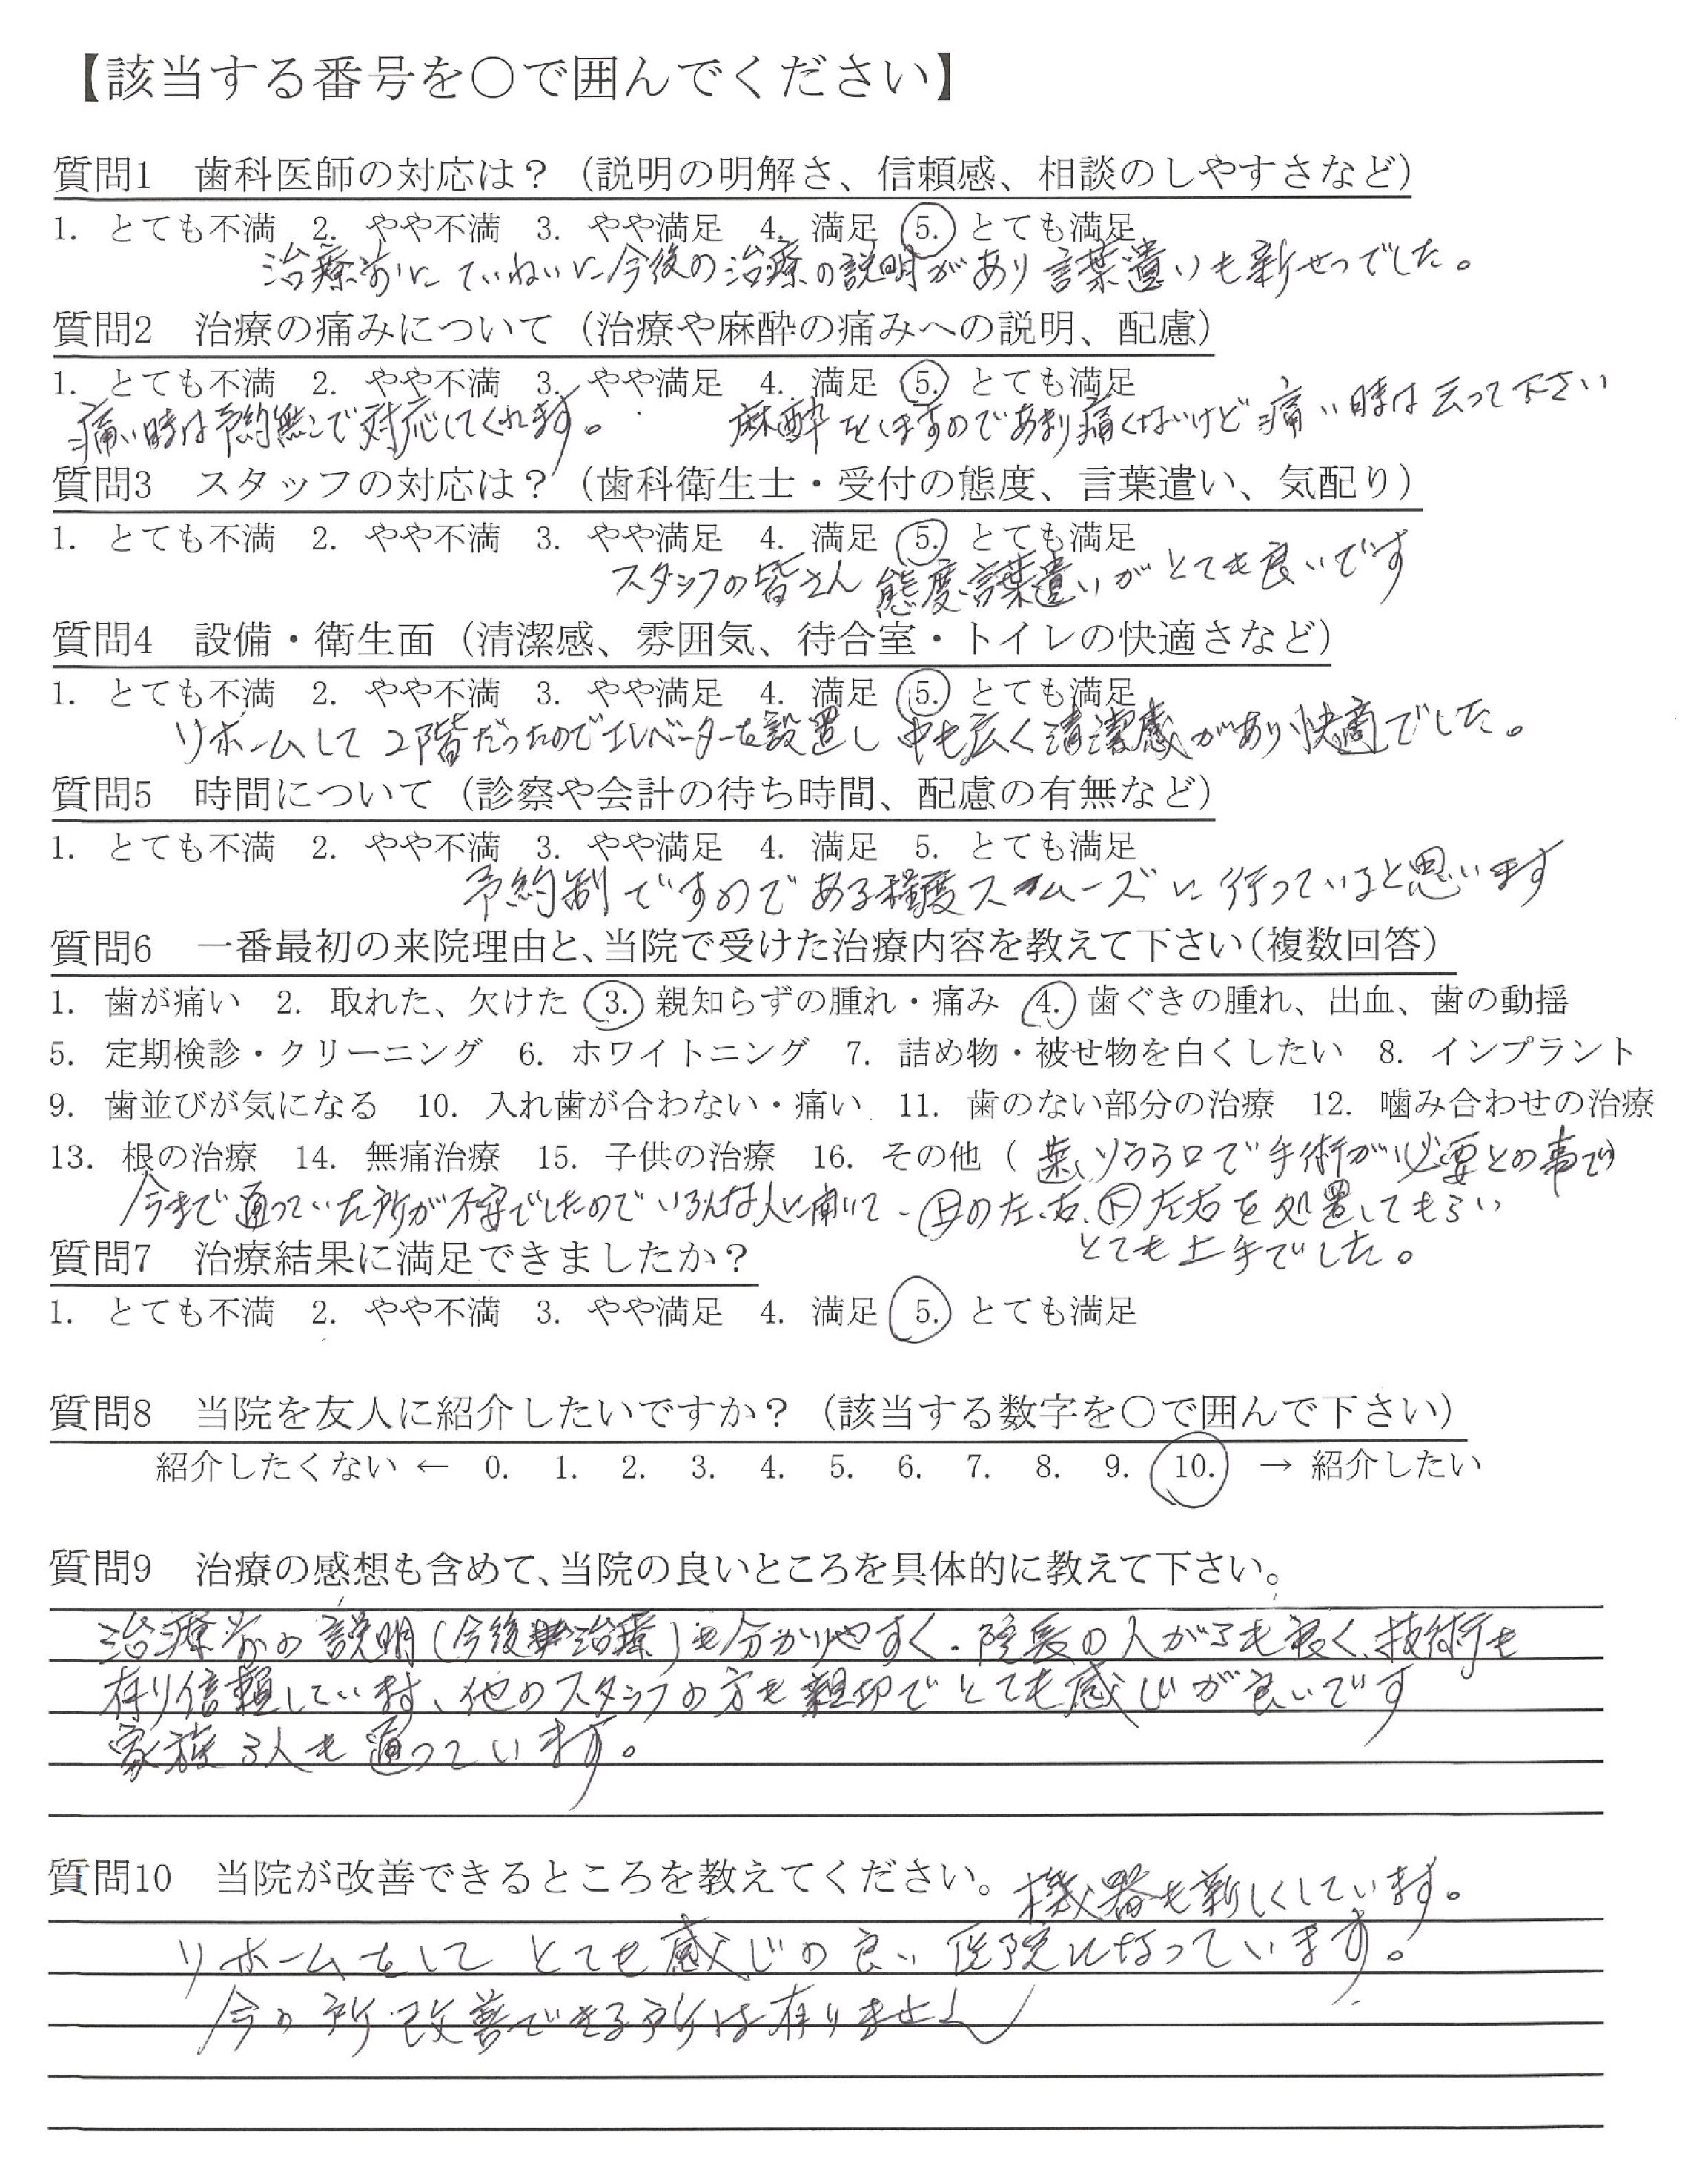 【該当する番号を○で囲んでください】
質問1　歯科医師の対応は？（説明の明解さ、信頼感、相談のしやすさなど）
1. とても不満　2. やや不満　3. やや満足　4. 満足　5. とても満足
治療前にていねいに今後の治療の説明があり言葉遣いも新せつでした。
質問2　治療の痛みについて（治療や麻酔の痛みへの説明、配慮）
1. とても不満　2. やや不満　3. やや満足　4. 満足　5. とても満足
痛い時は予約無しで対応してくれます。　麻酔をしますのであまり痛くないけど痛い時は云って下さい
質問3　スタッフの対応は？（歯科衛生士・受付の態度、言葉遣い、気配り）
1. とても不満　2. やや不満　3. やや満足　4. 満足　5. とても満足
スタッフの皆さん態度、言葉遣いがとても良いです
質問4　設備・衛生面（清潔感、雰囲気、待合室・トイレの快適さなど）
1. とても不満　2. やや不満　3. やや満足　4. 満足　5. とても満足
リホームして2階だったのでエレベーターを設置し中も広く清潔感があり快適でした。
質問5　時間について（診察や会計の待ち時間、配慮の有無など）
1. とても不満　2. やや不満　3. やや満足　4. 満足　5. とても満足
予約制ですのである程度スムーズに行っていると思います
質問6　一番最初の来院理由と、当院で受けた治療内容を教えて下さい（複数回答）
1. 歯が痛い　2. 取れた、欠けた　3. 親知らずの腫れ・痛み　4. 歯ぐきの腫れ、出血、歯の動揺
5. 定期検診・クリーニング　6. ホワイトニング　7. 詰め物・被せ物を白くしたい　8. インプラント
9. 歯並びが気になる　10. 入れ歯が合わない・痛い　11. 歯のない部分の治療　12. 噛み合わせの治療
13. 根の治療　14. 無痛治療　15. 子供の治療　16. その他（歯、ソウロウで手術が必要との事で）
今まで通っていた所が不安でしたのでいろんな人に聞いて、上の左、右、下左右を処置してもらい
とても上手でした。
質問7　治療結果に満足できましたか？
1. とても不満　2. やや不満　3. やや満足　4. 満足　5. とても満足
質問8　当院を友人に紹介したいですか？（該当する数字を○で囲んで下さい）
紹介したくない ← 0. 1. 2. 3. 4. 5. 6. 7. 8. 9. 10. → 紹介したい
質問9　治療の感想も含めて、当院の良いところを具体的に教えて下さい。
治療前の説明（今後治療）も分かりやすく、院長の人がらも良く、技術も
有り信頼しています、他のスタッフの方も親切でとても感じが良いです
家族3人も通っています。
質問10　当院が改善できるところを教えてください。
機器も新しくしています。
リホームをしてとても感じの良い医院になっています。
今の所改善できる所は有りません